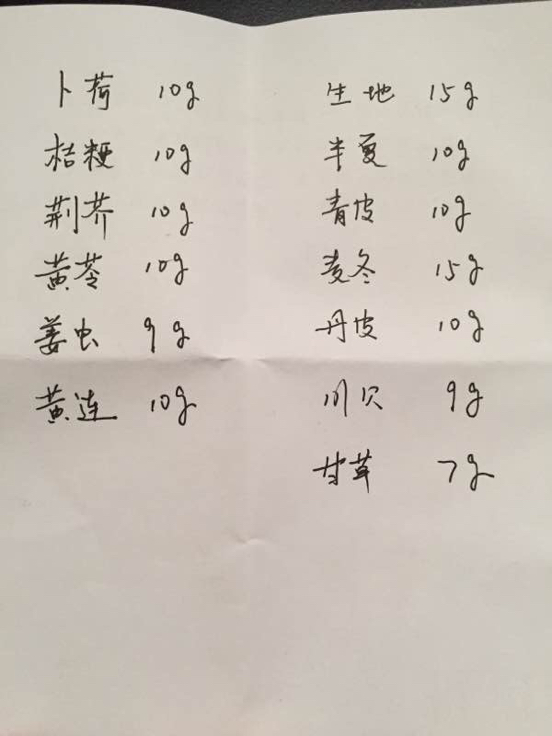 卜荷 10g
桔梗 10g
荆芥 10g
黄苓 10g
姜虫 9g
黄连 10g
生地 15g
半夏 10g
青皮 10g
麦冬 15g
丹皮 10g
川贝 9g
甘草 7g